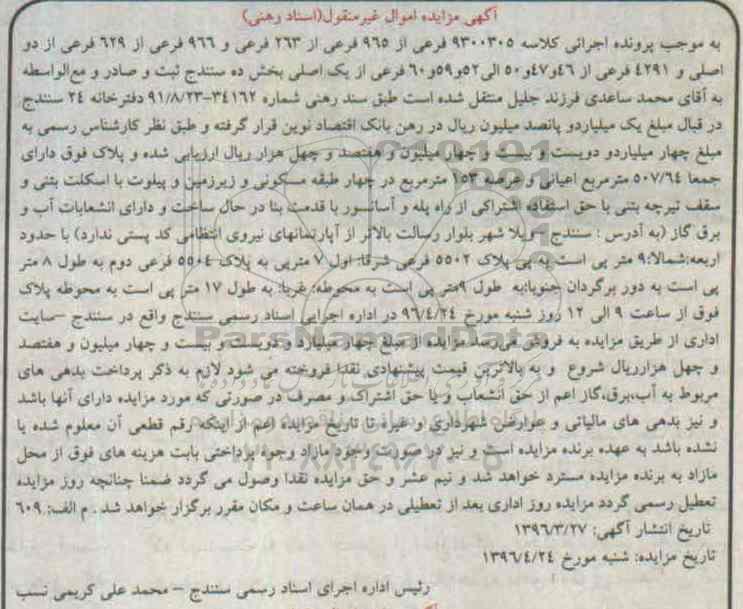 آگهی مزایده اموال غیرمنقول(اسناد رهنی)
به موجب پرونده اجرائی کلاسه ۹۳۰۰۳۰۵ فرعی از ۹۶۵ فرعی از ۲۶۳ فرعی و ۹۶۶ فرعی از ۶۲۹ فرعی از دو
اصلی و ۴۲۹۱ فرعی از ۴۶و۴۷و۵۰ الی۵۲و۵۹و۶۰ فرعی از یک اصلی بخش ده سنندج ثبت و صادر و مع‌الواسطه
به آقای محمد ساعدی فرزند جلیل منتقل شده است طبق سند رهنی شماره ۳۴۱۶۲-۹۱/۸/۲۳ دفترخانه ۲۴ سنندج
در قبال مبلغ یک میلیاردو پانصد میلیون ریال در رهن بانک اقتصاد نوین قرار گرفته و طبق نظر کارشناس رسمی به
مبلغ چهار میلیاردو دویست و بیست و چهار میلیون و هفتصد و چهل هزار ریال ارزیابی شده و پلاک فوق دارای
جمعا ۵۰۷/۶۴ مترمربع اعیانی و عرصه ۱۵۳ مترمربع در چهار طبقه مسکونی و زیرزمین و پیلوت با اسکلت بتنی و
سقف تیرچه بتنی با حق استفاده اشتراکی از راه پله و آسانسور با قدمت بنا در حال ساخت و دارای انشعابات آب و
برق گاز (به آدرس : سنندج - ویلا شهر بلوار رسالت بالاتر از آپارتمانهای نیروی انتظامی کد پستی ندارد) با حدود
اربعه:شمالا:۹ متر پی است به پی پلاک ۵۵۰۲ فرعی شرقا: اول ۷ مترپی به پلاک ۵۵۰۴ فرعی دوم به طول ۸ متر
پی است به دور برگردان جنوبا:به طول ۹متر پی است به محوطه: غربا: به طول ۱۷ متر پی است به محوطه پلاک
فوق از ساعت ۹ الی ۱۲ روز شنبه مورخ ۹۶/۴/۲۴ در اداره اجرایی اسناد رسمی سنندج واقع در سنندج -سایت
اداری از طریق مزایده به فروش می‌رسد مزایده از مبلغ چهار میلیارد و دویست و بیست و چهار میلیون و هفتصد
و چهل هزارریال شروع و به بالاترین قیمت پیشنهادی نقدا فروخته می شود لازم به ذکر پرداخت بدهی های
مربوط به آب،برق،گاز اعم از حق انشعاب و یا حق اشتراک و مصرف در صورتی که مورد مزایده دارای آنها باشد
و نیز بدهی های مالیاتی و عوارض شهرداری و غیره تا تاریخ مزایده اعم از اینکه رقم قطعی آن معلوم شده یا
نشده باشد به عهده برنده مزایده است و نیز در صورت وجود مازاد وجوه پرداختی بابت هزینه های فوق از محل
مازاد به برنده مزایده مسترد خواهد شد و نیم عشر و حق مزایده نقدا وصول می گردد ضمنا چنانچه روز مزایده
تعطیل رسمی گردد مزایده روز اداری بعد از تعطیلی در همان ساعت و مکان مقرر برگزار خواهد شد . م الف: ۶۰۹
تاریخ انتشار آگهی: ۱۳۹۶/۳/۲۷
تاریخ مزایده: شنبه مورخ ۱۳۹۶/۴/۲۴
رئیس اداره اجرای اسناد رسمی سنندج - محمد علی کریمی نسب
ParsNamadData